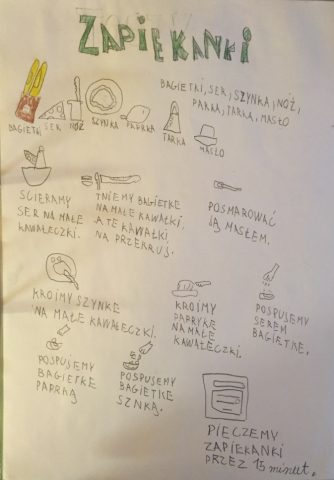 ZAPIEKANKI
BAGIETKI, SER, SZYNKA, NÓŻ,
PAPRKA, TARKA, MASŁO
BAGIETKI
SER
NÓŻ
SZYNKA
PAPRKA
TARKA
MASŁO
ŚCIERAMY
SER NA MAŁE
KAWAŁECZKI.
TNIEMY BAGIETKE
NA MAŁE KAWAŁKI,
A TE KAWAŁKI
NA PRZEKRUJ.
POSMAROWAĆ
JĄ MASŁEM.
KROIMY SZYNKE
NA MAŁE KAWAŁECZKI.
KROIMY
PAPRYKE
NA MAŁE
KAWAŁECZKI.
POSPUJEMY
SEREM
BAGIETKE.
POSPUJEMY
BAGIETKE
PAPRKĄ
POSPUJEMY
BAGIETKE
SZNKĄ.
PIECZEMY
ZAPIEKANKI
PRZEZ 15 minut.